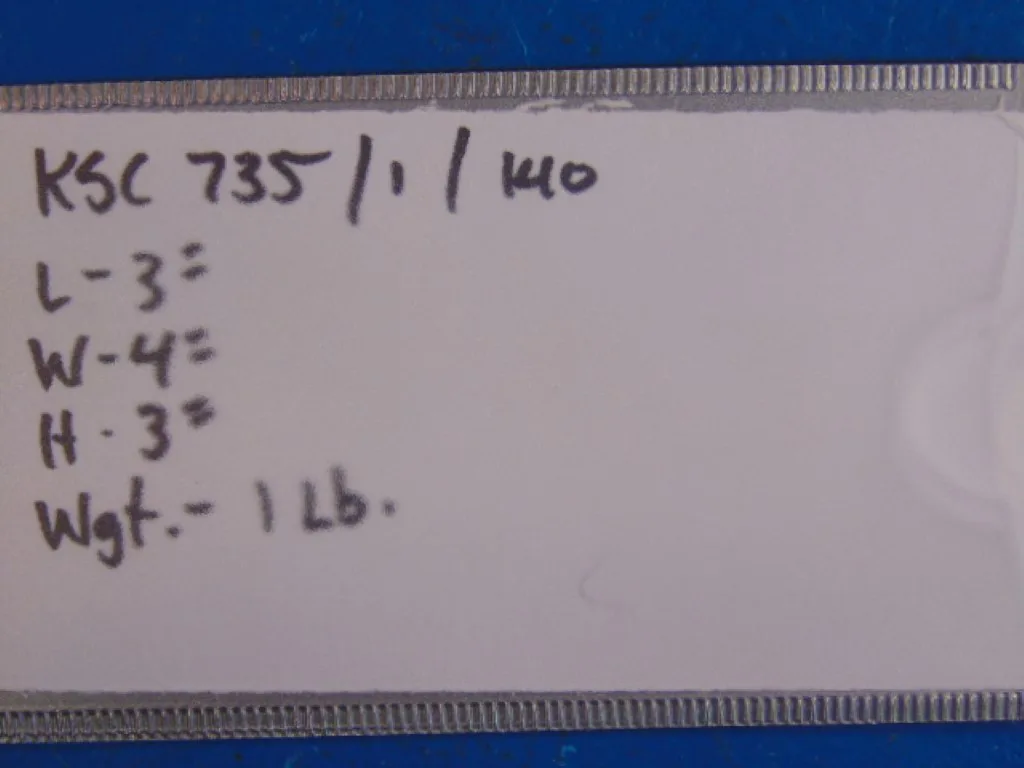 KSC 735 / 1 / 1410
L - 3"
W - 4"
H - 3"
Wgt. - 1 Lb.